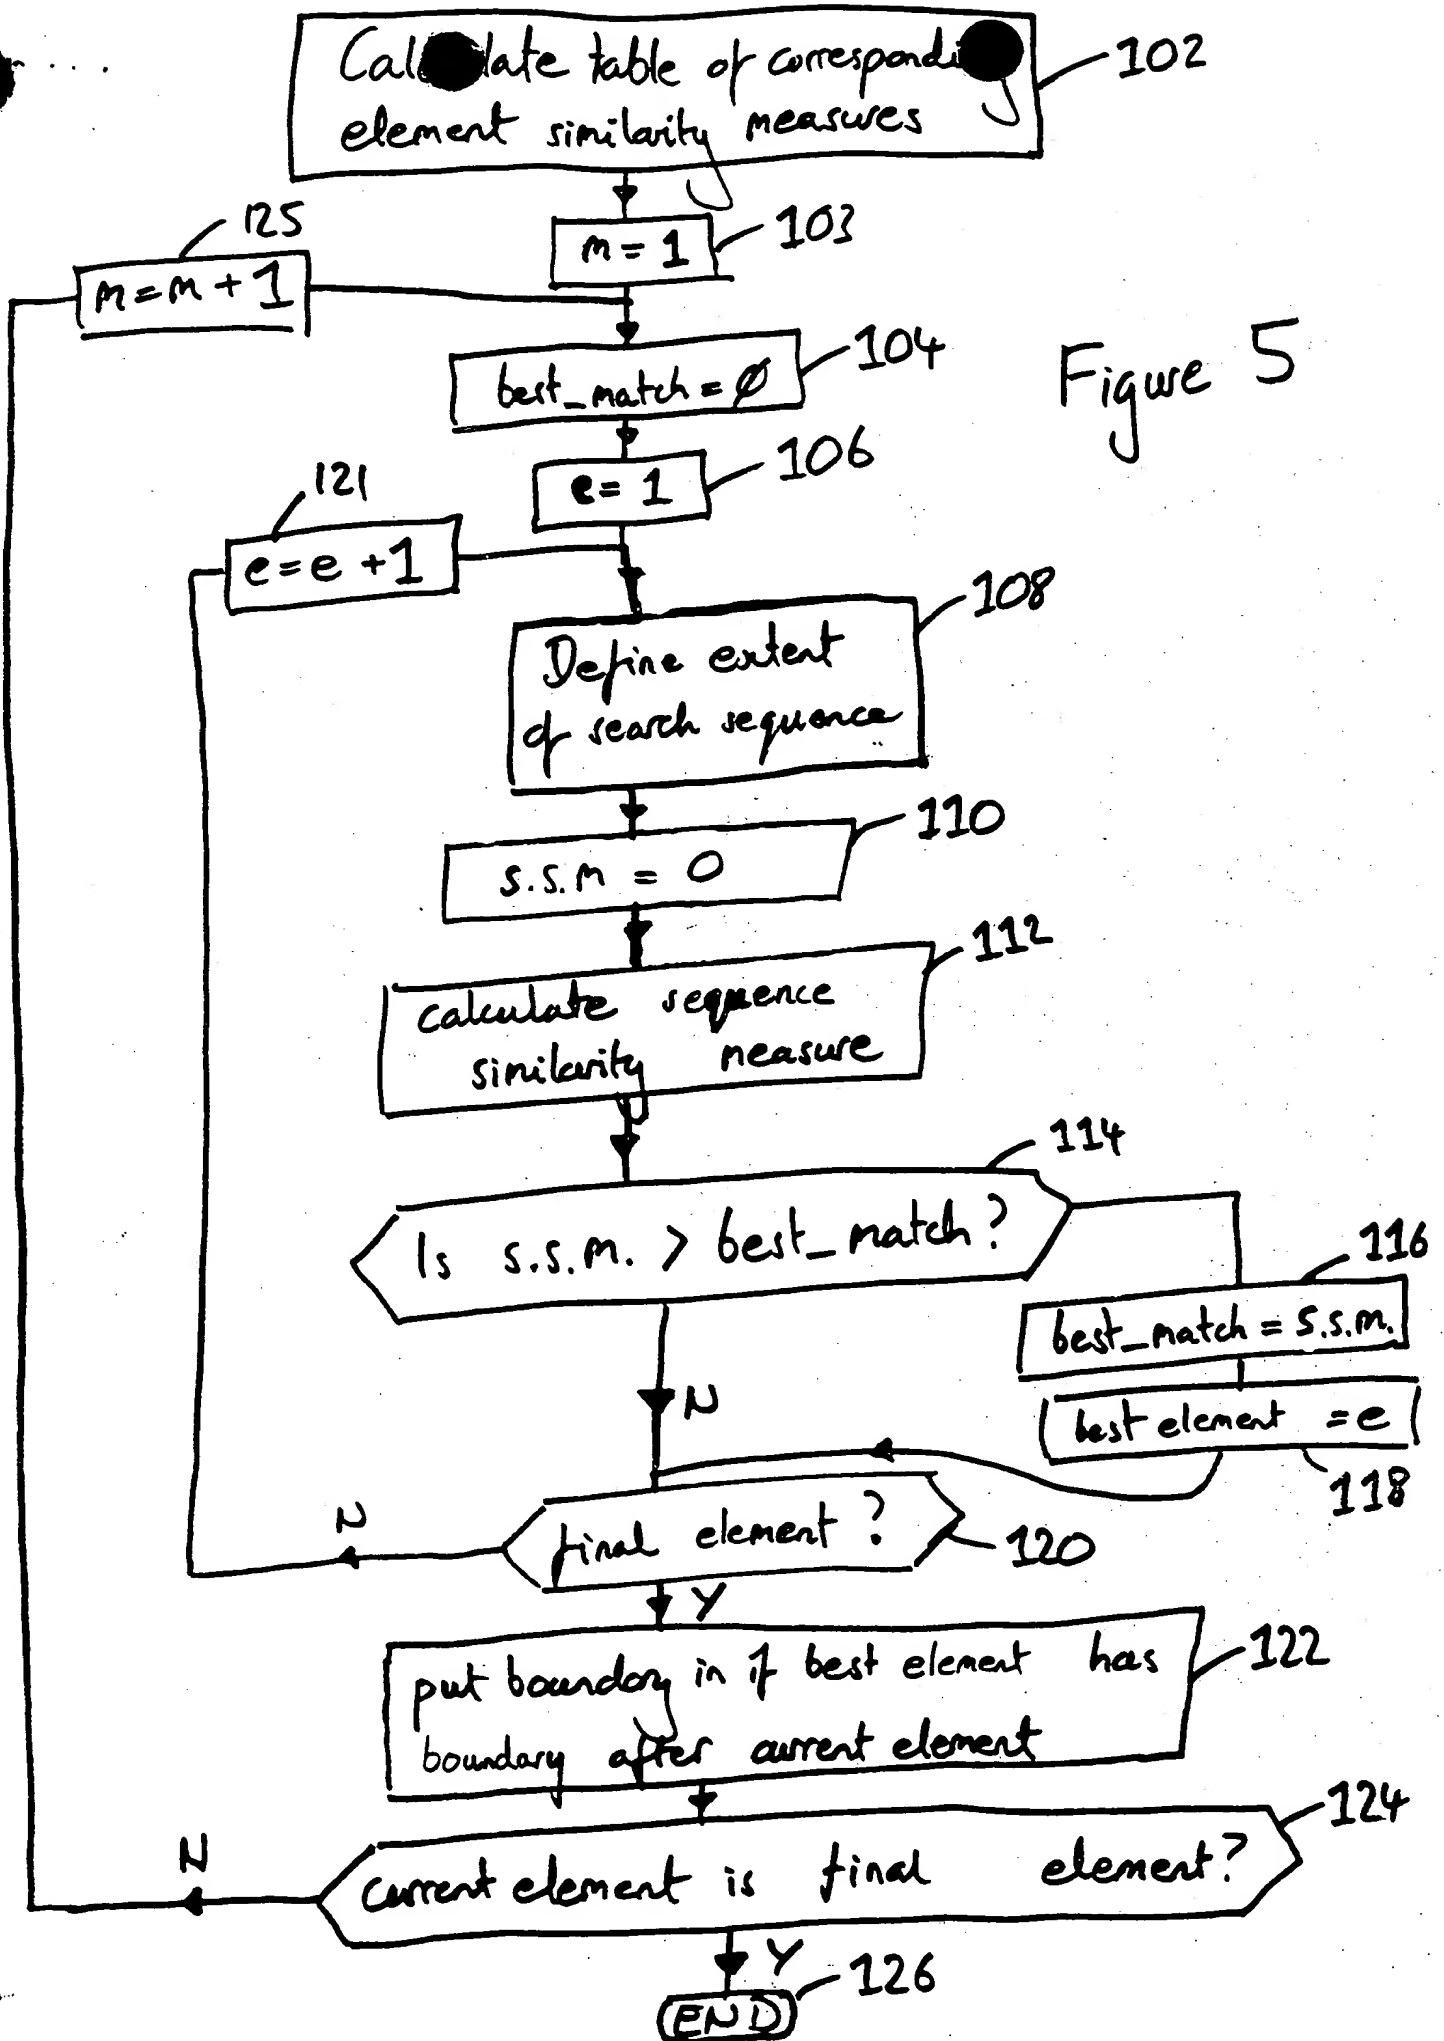 Calculate table of corresponding
element similarity measures
102
125
m = 1
103
m = m + 1
best_match = ∅
104
Figure 5
e = 1
106
121
e = e + 1
108
Define extent
of search sequence
110
s.s.m = 0
112
calculate sequence
similarity measure
114
Is s.s.m. > best_match?
116
best_match = s.s.m.
N
best element = e
118
N
final element?
120
Y
put boundary in if best element has
122
boundary after current element
124
N
current element is final element?
Y
126
END